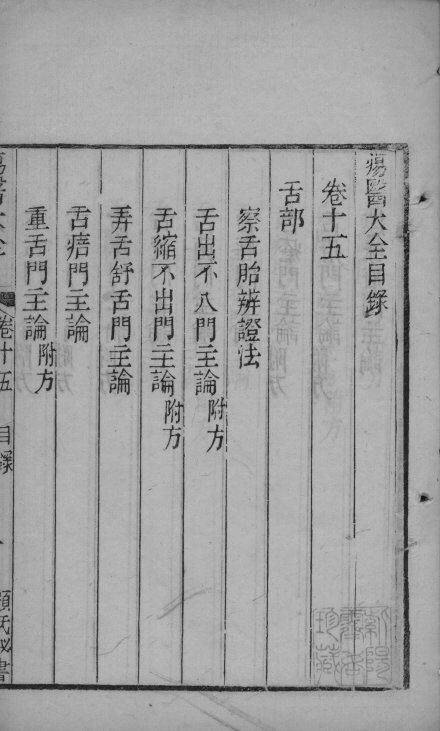 瘍醫大全目錄
卷十五
舌部
察舌胎辨證法
舌出不入門主論附方
舌縮不出門主論附方
弄舌舒舌門主論
舌瘖門主論
重舌門主論附方
瘍醫大全 卷十五 目錄 一 顧氏秘書